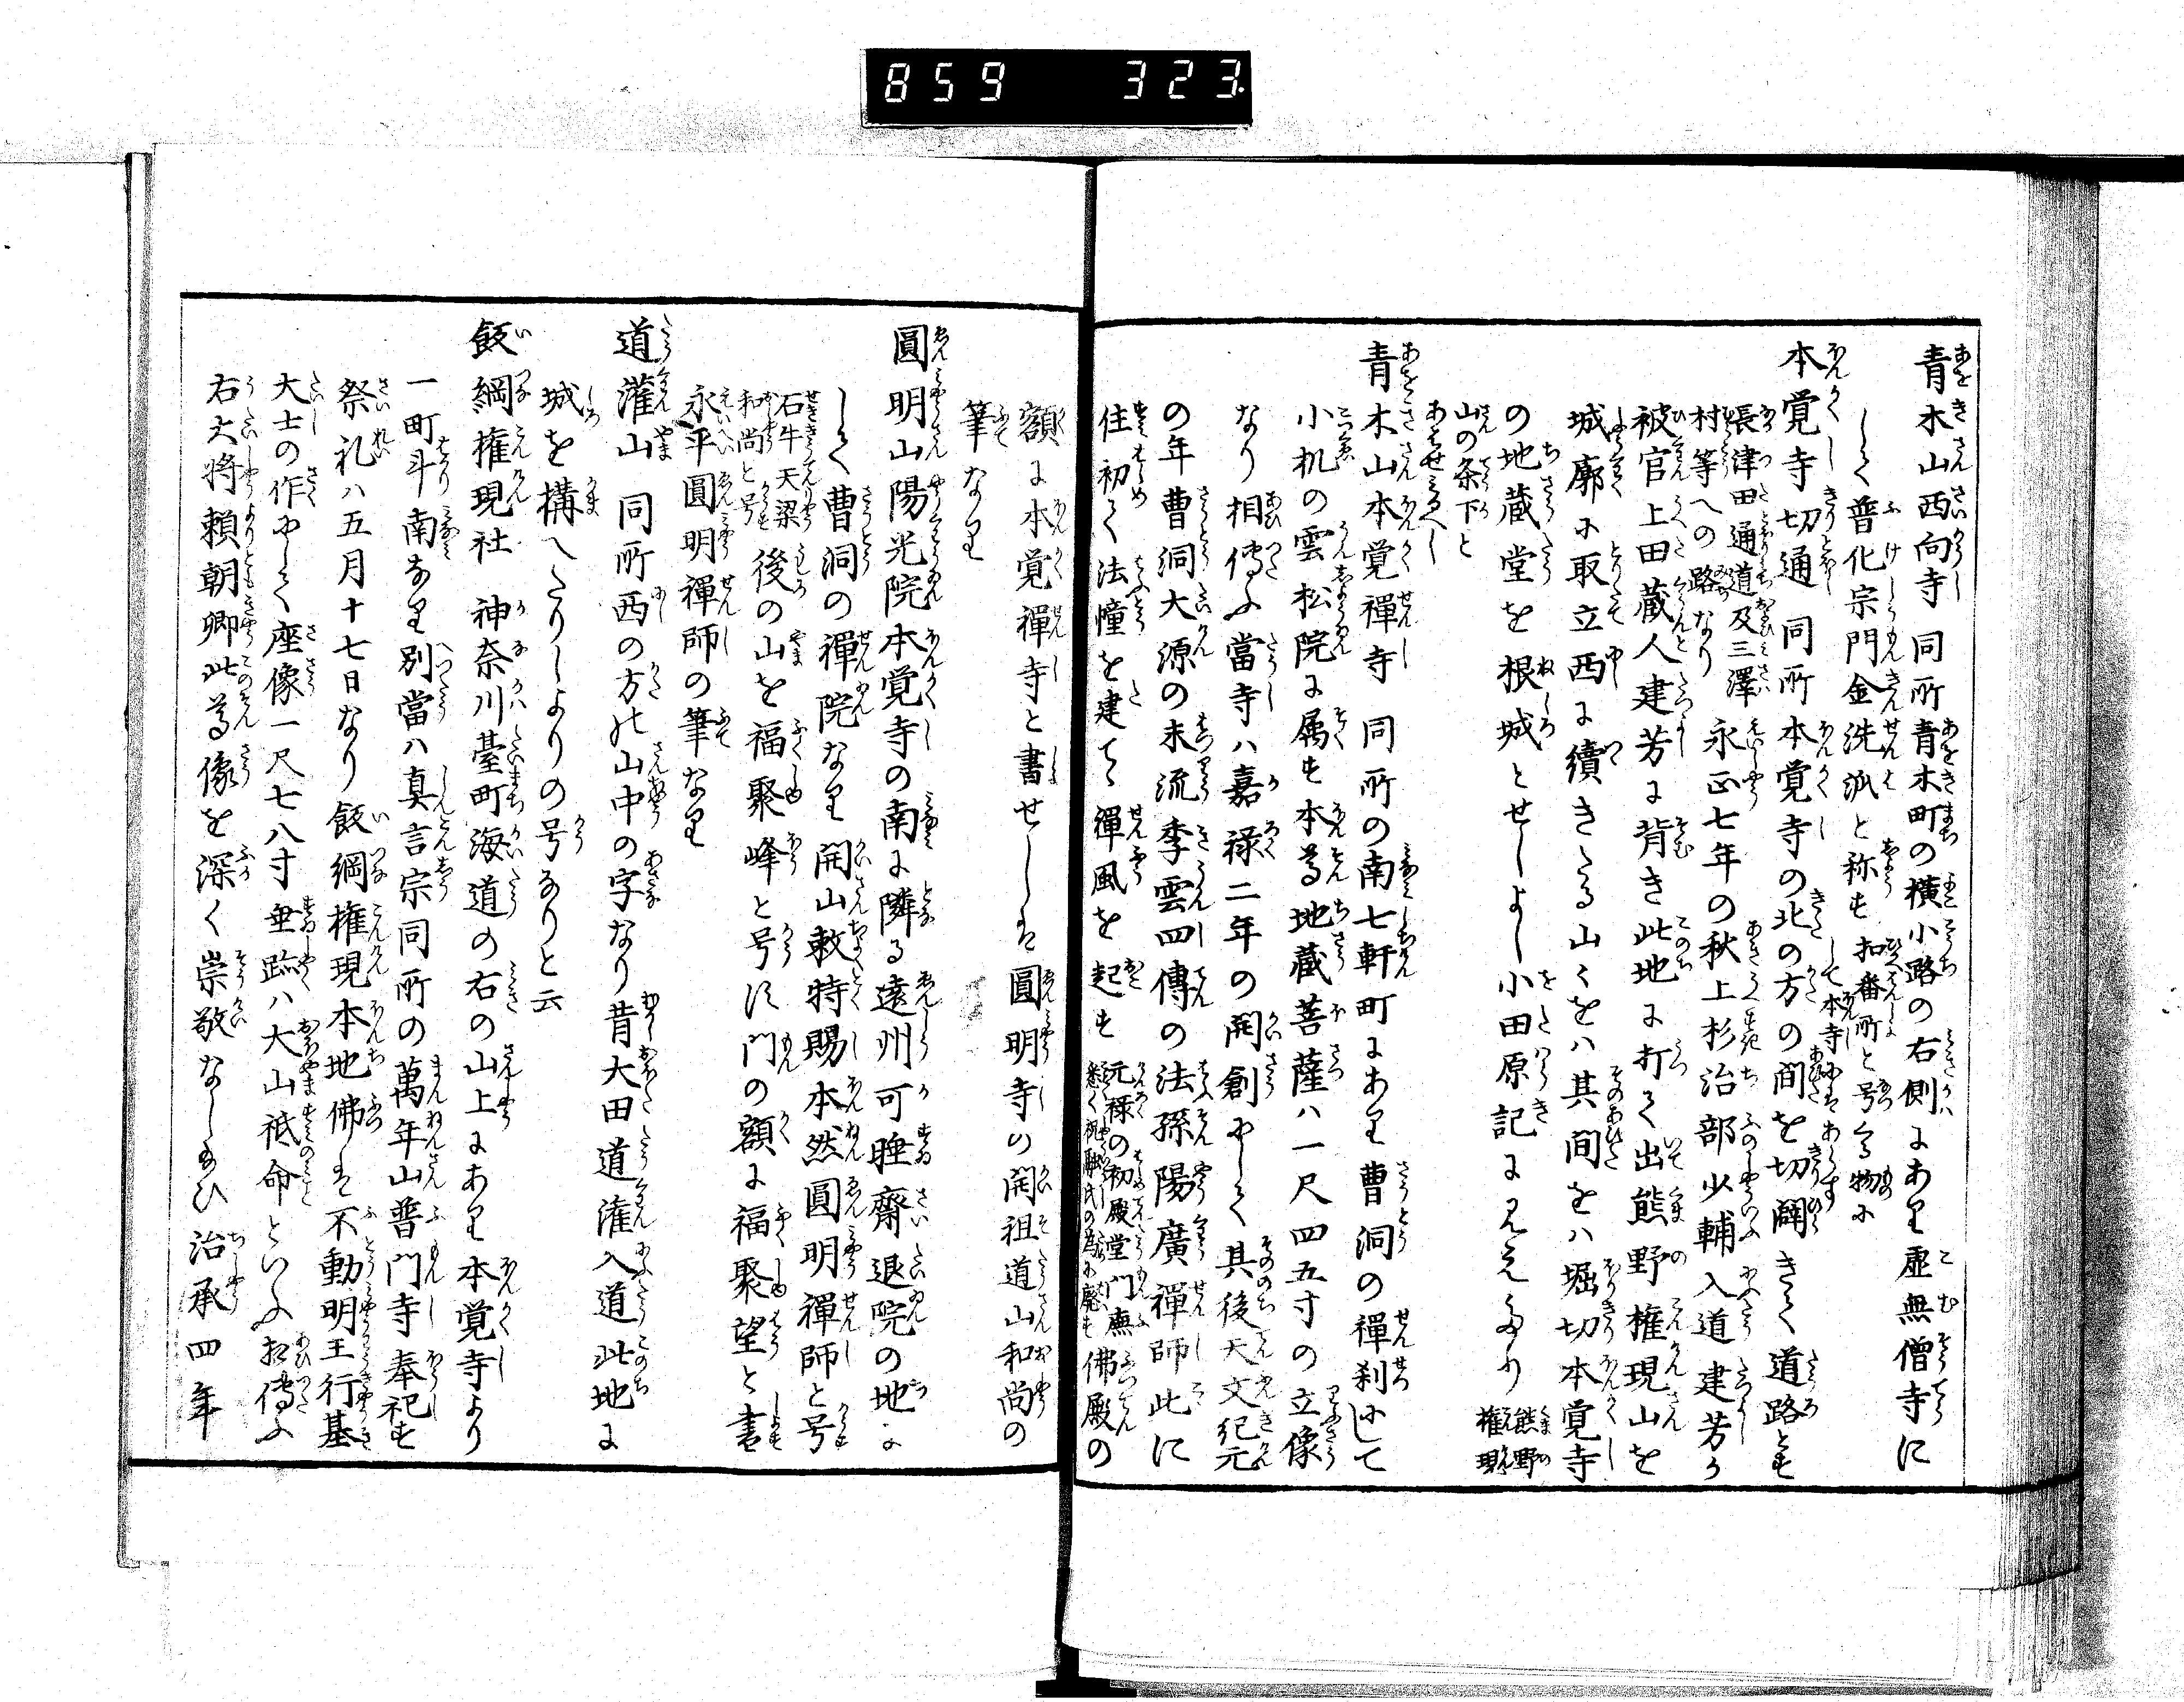 859 323
青木山西向寺 同所青木町の横小路の右側にあり虚無僧寺に
して普化宗門金洗派と称す 扣番所と号る物にして本寺にはあらす
本覚寺切通 同所本覚寺の北の方の間を切闢きて道路とす
長津田通道及三澤村等への路なり 永正七年の秋上杉治部少輔入道建芳か
被官上田蔵人建芳に背き此地に打て出熊野権現山を
城廓に取立西に續きたる山〱をは其間をは堀切本覚寺
の地蔵堂を根城とせしよし小田原記に見えたり 熊野権現
山の条下と
あはせみるへし
青木山本覚禅寺 同所の南七軒町にあり曹洞の禅刹にして
小机の雲松院に属す本尊地蔵菩薩ハ一尺四五寸の立像
なり相傳ふ當寺ハ嘉禄二年の開創にして其後天文紀元
の年曹洞大源の末流季雲四傳の法孫陽廣禅師此に
住初て法幢を建て禅風を起す 元禄の初殿堂門廡悉く祝融氏の為に廃す 佛殿の
額に本覚禅寺と書せしは圓明寺の開祖道山和尚の
筆なり
圓明山陽光院 本覚寺の南に隣る遠州可睡齋退院の地に
して曹洞の禅院なり開山敕特賜本然圓明禅師と号
石牛天梁和尚と号す 後の山を福聚峰と号け門の額に福聚望と書す
永平圓明禅師の筆なり
道灌山 同所西の方の山中の字なり昔大田道灌入道此地に
城を構へたりしよりの号なりと云
飯綱権現社 神奈川臺町海道の右の山上にあり本覚寺より
一町斗南なり別當ハ真言宗同所の萬年山普門寺奉祀す
祭礼ハ五月十七日なり飯綱権現本地佛は不動明王行基
大士の作にして座像一尺七八寸垂跡ハ大山祇命といふ相傳ふ
右大将頼朝卿此尊像を深く崇敬なし給ひ治承四年